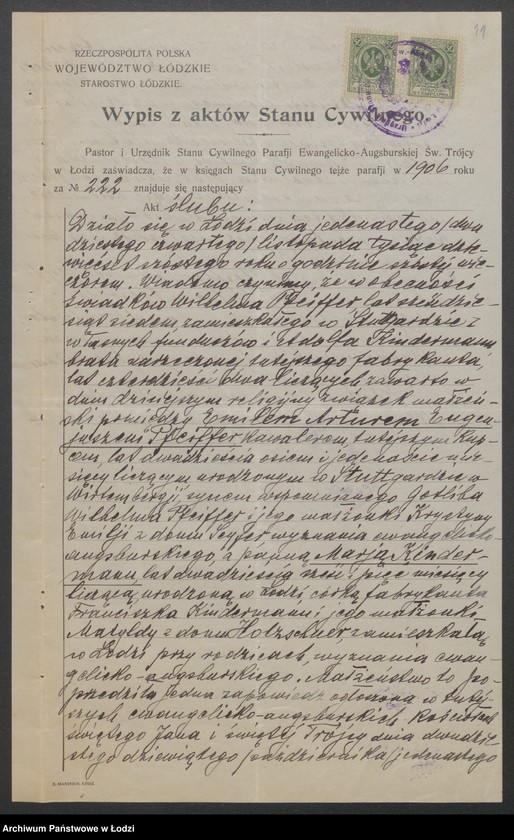 11
RZECZPOSPOLITA POLSKA
WOJEWÓDZTWO ŁÓDZKIE
STAROSTWO ŁÓDZKIE.
Wypis z aktów Stanu Cywilnego.
Pastor i Urzędnik Stanu Cywilnego Parafji Ewangelicko-Augsburskiej Św. Trójcy
w Łodzi zaświadcza, że w księgach Stanu Cywilnego tejże parafji w 1906 roku
za № 222 znajduje się następujący
Akt ślubu:
Działo się w Łodzi dnia jedenastego/dwu
dziestego czwartego/listopada tysiąc dzie-
więćset szóstego roku o godzinie szóstej wie-
czorem. Wiadomo czynimy, że w obecności
świadków Wilhelma Pfeiffer, lat
siedem, zamieszkałego w Stuttgardzie z
własnych funduszów i Adolfa Kindermann
brata narzeczonej tutejszego fabrykanta,
lat czterdzieści dwa liczących zawarto w
dniu dzisiejszym religijny związek małżeń-
ski pomiędzy Emilem Arturem Eugen-
juszem Pfeiffer kawalerem, tutejszym kup-
cem, lat dwadzieścia osiem i jedenaście mie-
sięcy liczącym, urodzonym w Stuttgardzie w
Wirtembergji, synem wspomnianego Gotliba
Wilhelma Pfeiffer i jego małżonki Krystyny
Emilji z domu Seyfer wyznania ewangelicko-
augsburskiego, a panną Marją Kinder-
mann, lat dwadzieścia sześć i pięć miesięcy
liczącą, urodzoną w Łodzi, córką fabrykanta
Franciszka Kindermann i jego małżonki
Matyldy z domu Holzschuer zamieszkałą
w Łodzi przy rodzicach, wyznania ewan-
gelicko-augsburskiego. Małżeństwo to po-
przedziła jedna zapowiedź ogłoszona w tutej-
szych ewangelicko-augsburskich kościołach
świętego Jana i świętej Trójcy dnia dwudzie-
stego dziewiątego października/jedenastego
Archiwum Państwowe w Łodzi